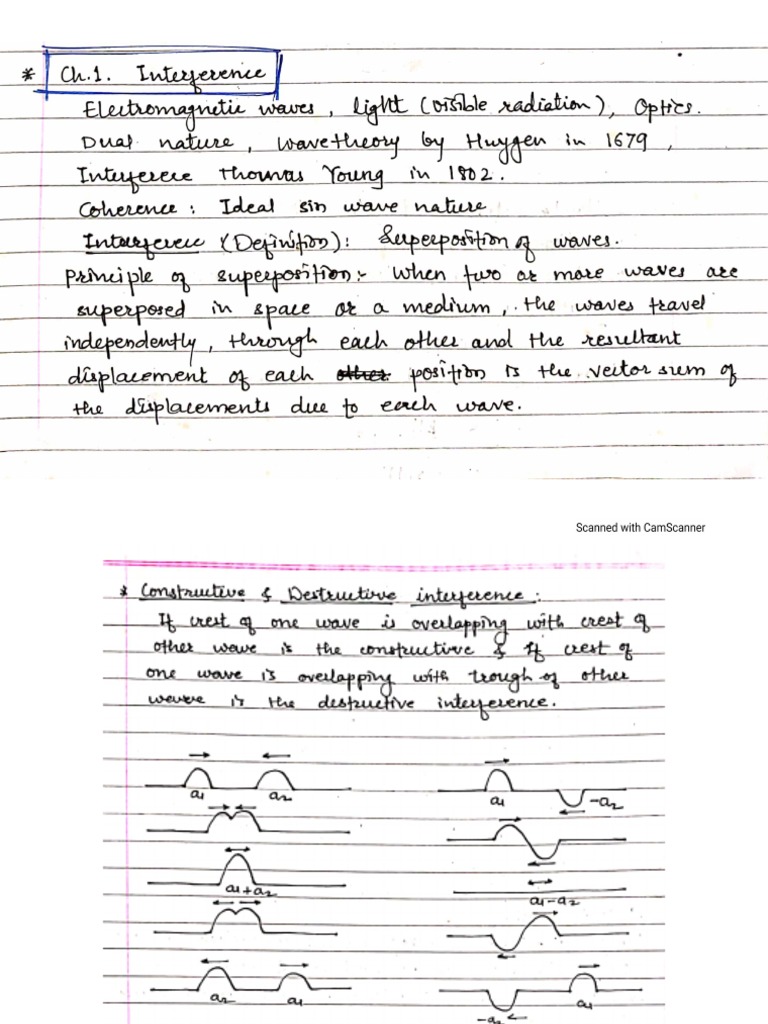 * Ch.1. Interference
Electromagnetic waves, light (visible radiation), Optics.
Dual nature, wavetheory by Huygen in 1679,
Interferece Thomas Young in 1802.
Coherence: Ideal sin wave nature
Interferece (Definition): Superposition of waves.
Principle of superposition:- When two or more waves are
superposed in space or a medium, the waves travel
independently, through each other and the resultant
displacement of each other position is the vector sum of
the displacements due to each wave.
Scanned with CamScanner
* Constructive & Destructive interference:
If crest of one wave is overlapping with crest of
other wave is the constructive & If crest of
one wave is overlapping with trough of other
wave is the destructive interference.
a1 a2 a1 -a2
a1+a2 a1-a2
a2 a1 -a2 a1